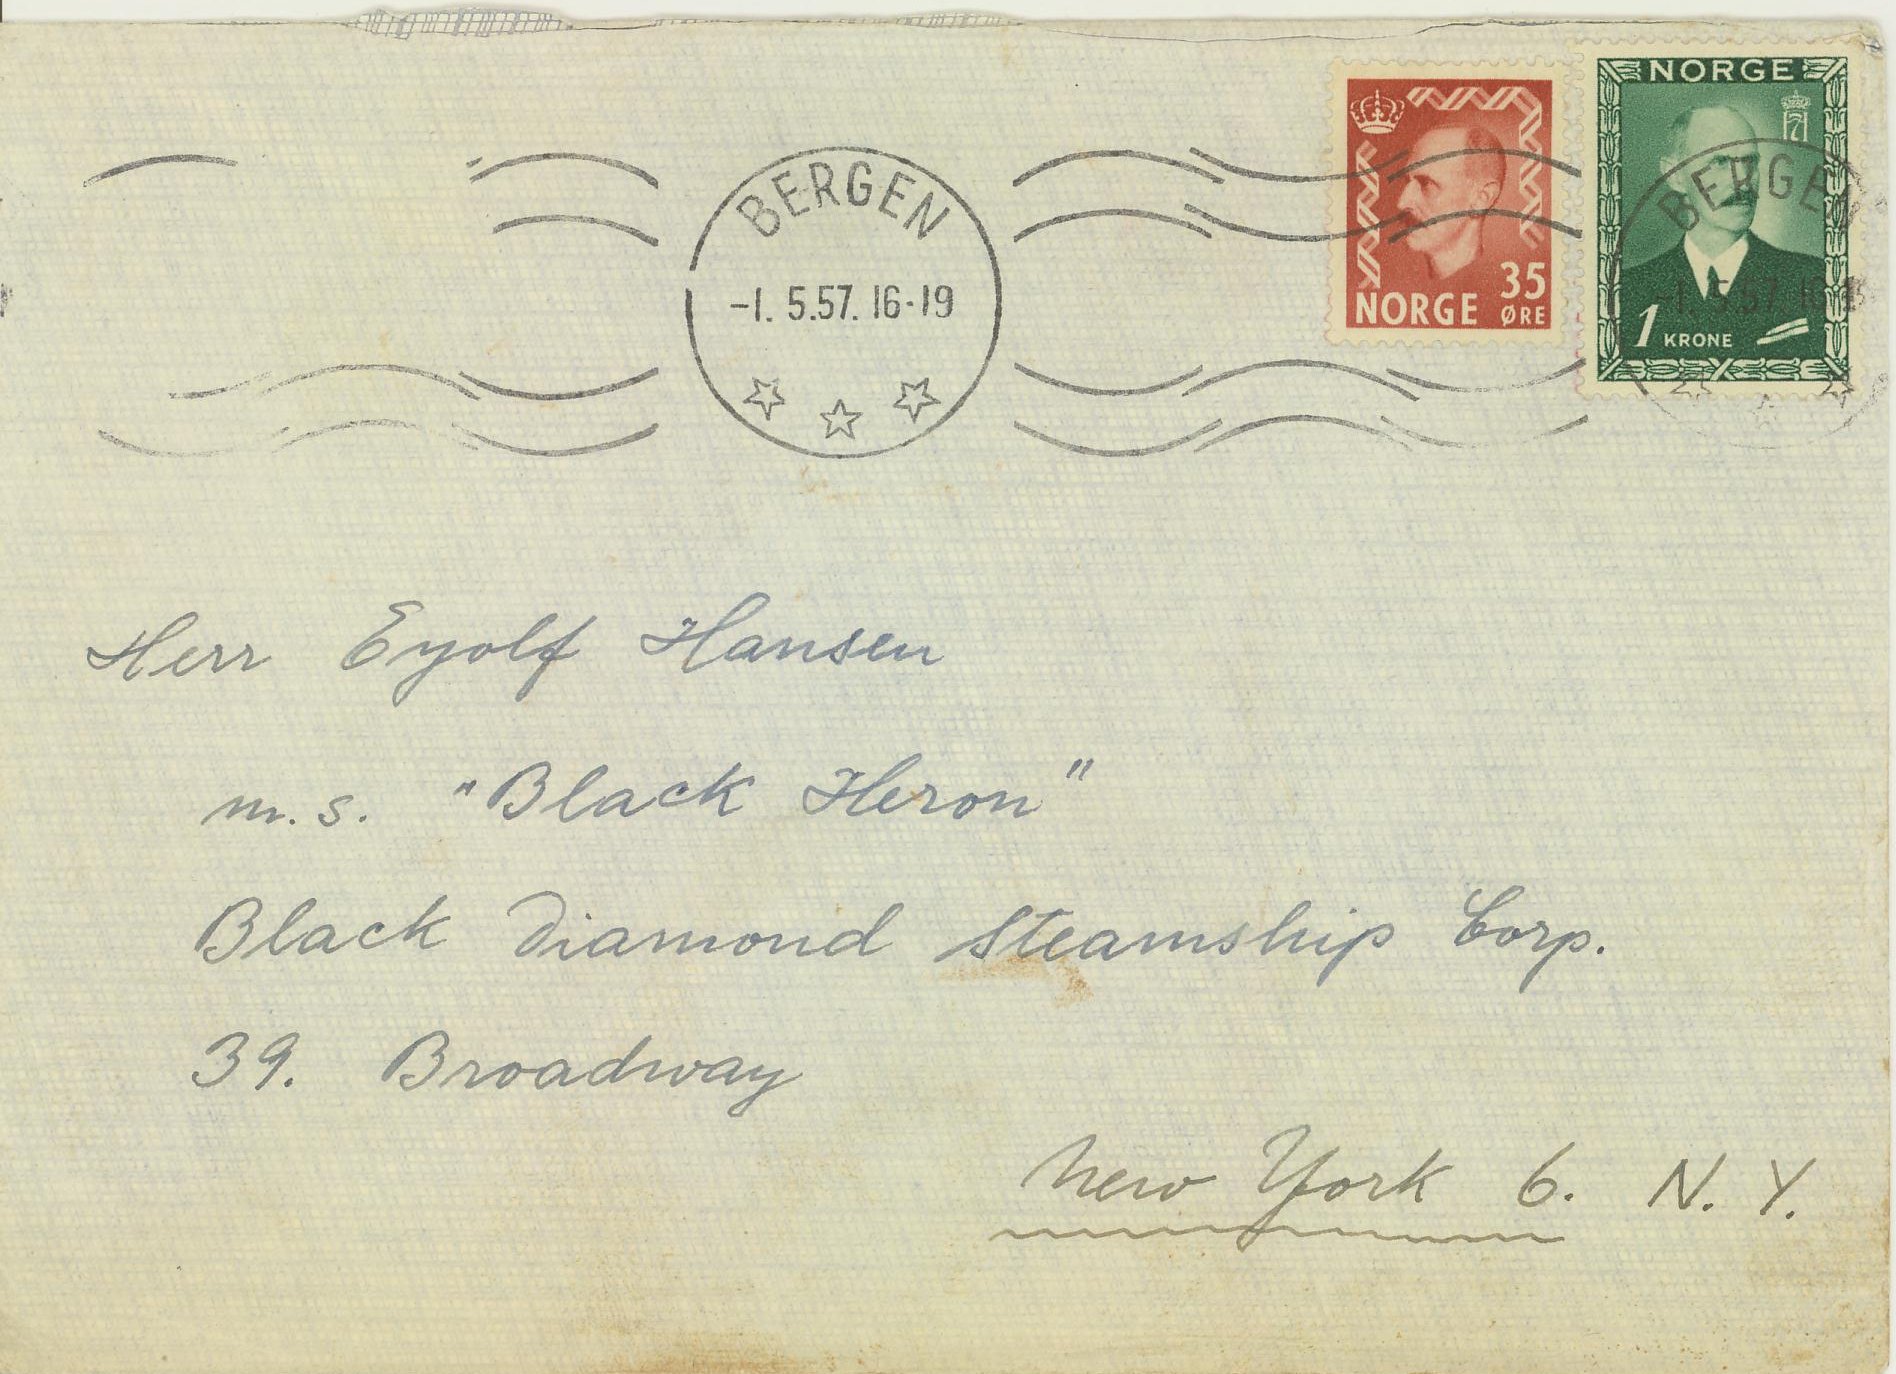 NORGE
BERGEN
-1. 5.57. 16-19
35
NORGE ØRE
BERGEN
-1. 5.57 16-19
1 KRONE
Herr Eyolf Hansen
m.s. "Black Heron"
Black Diamond Steamship Corp.
39. Broadway
New York 6. N.Y.